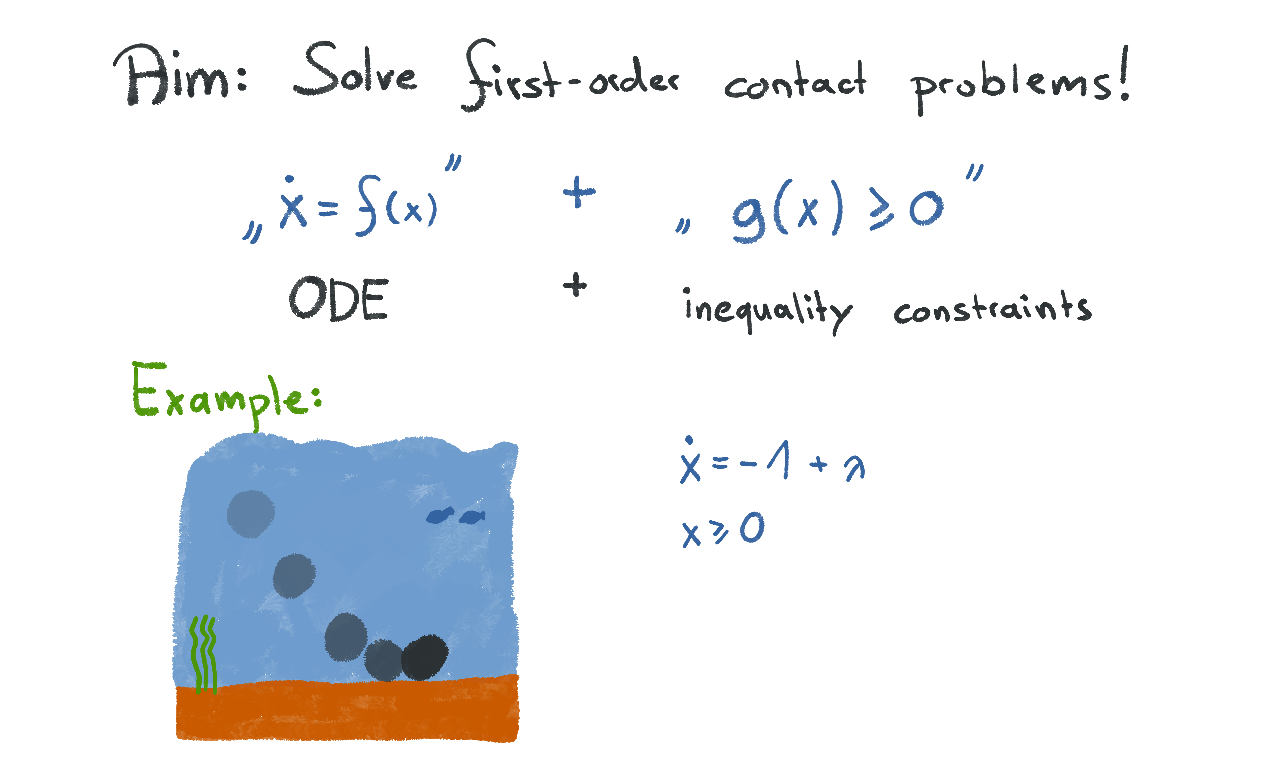 Aim: Solve first-order contact problems!
„ẋ = f(x)” + „g(x) ⩾ 0”
ODE + inequality constraints
Example:
ẋ = -1 + λ
x ⩾ 0